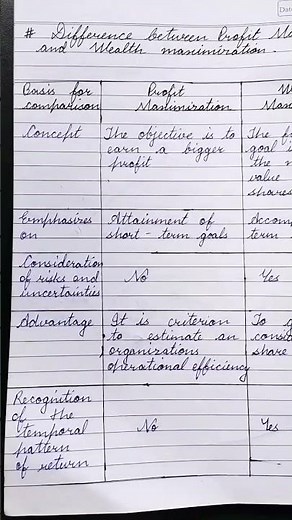 # Difference between Profit
and Wealth maximization.
Basis for
comparison
Profit
Maximization
Concept
The objective is to
earn a bigger
profit
The
goal
the
value
shares
Emphasizes
on
Attainment of
short-term goals
term
Consideration
of risks and
uncertainties
No
Yes
Advantage
It is criterion
to estimate an
organizations
operational efficiency
To
share
Recognition
of the
temporal
pattern
of return
No
Yes